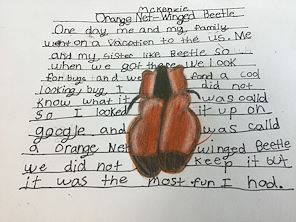 Mckenzie
Orange Net-Winged Beetle
One day me and my family
went on a vacation to the U.S. Me
and my sister like Beetle so
when we got there we look
for bugs and we fond a cool
looking bug. I did not
know what it was calld
so I looked it up on
google and was calld
a Orange Net winged Beetle
we did not keep it but
it was the most fun I had.